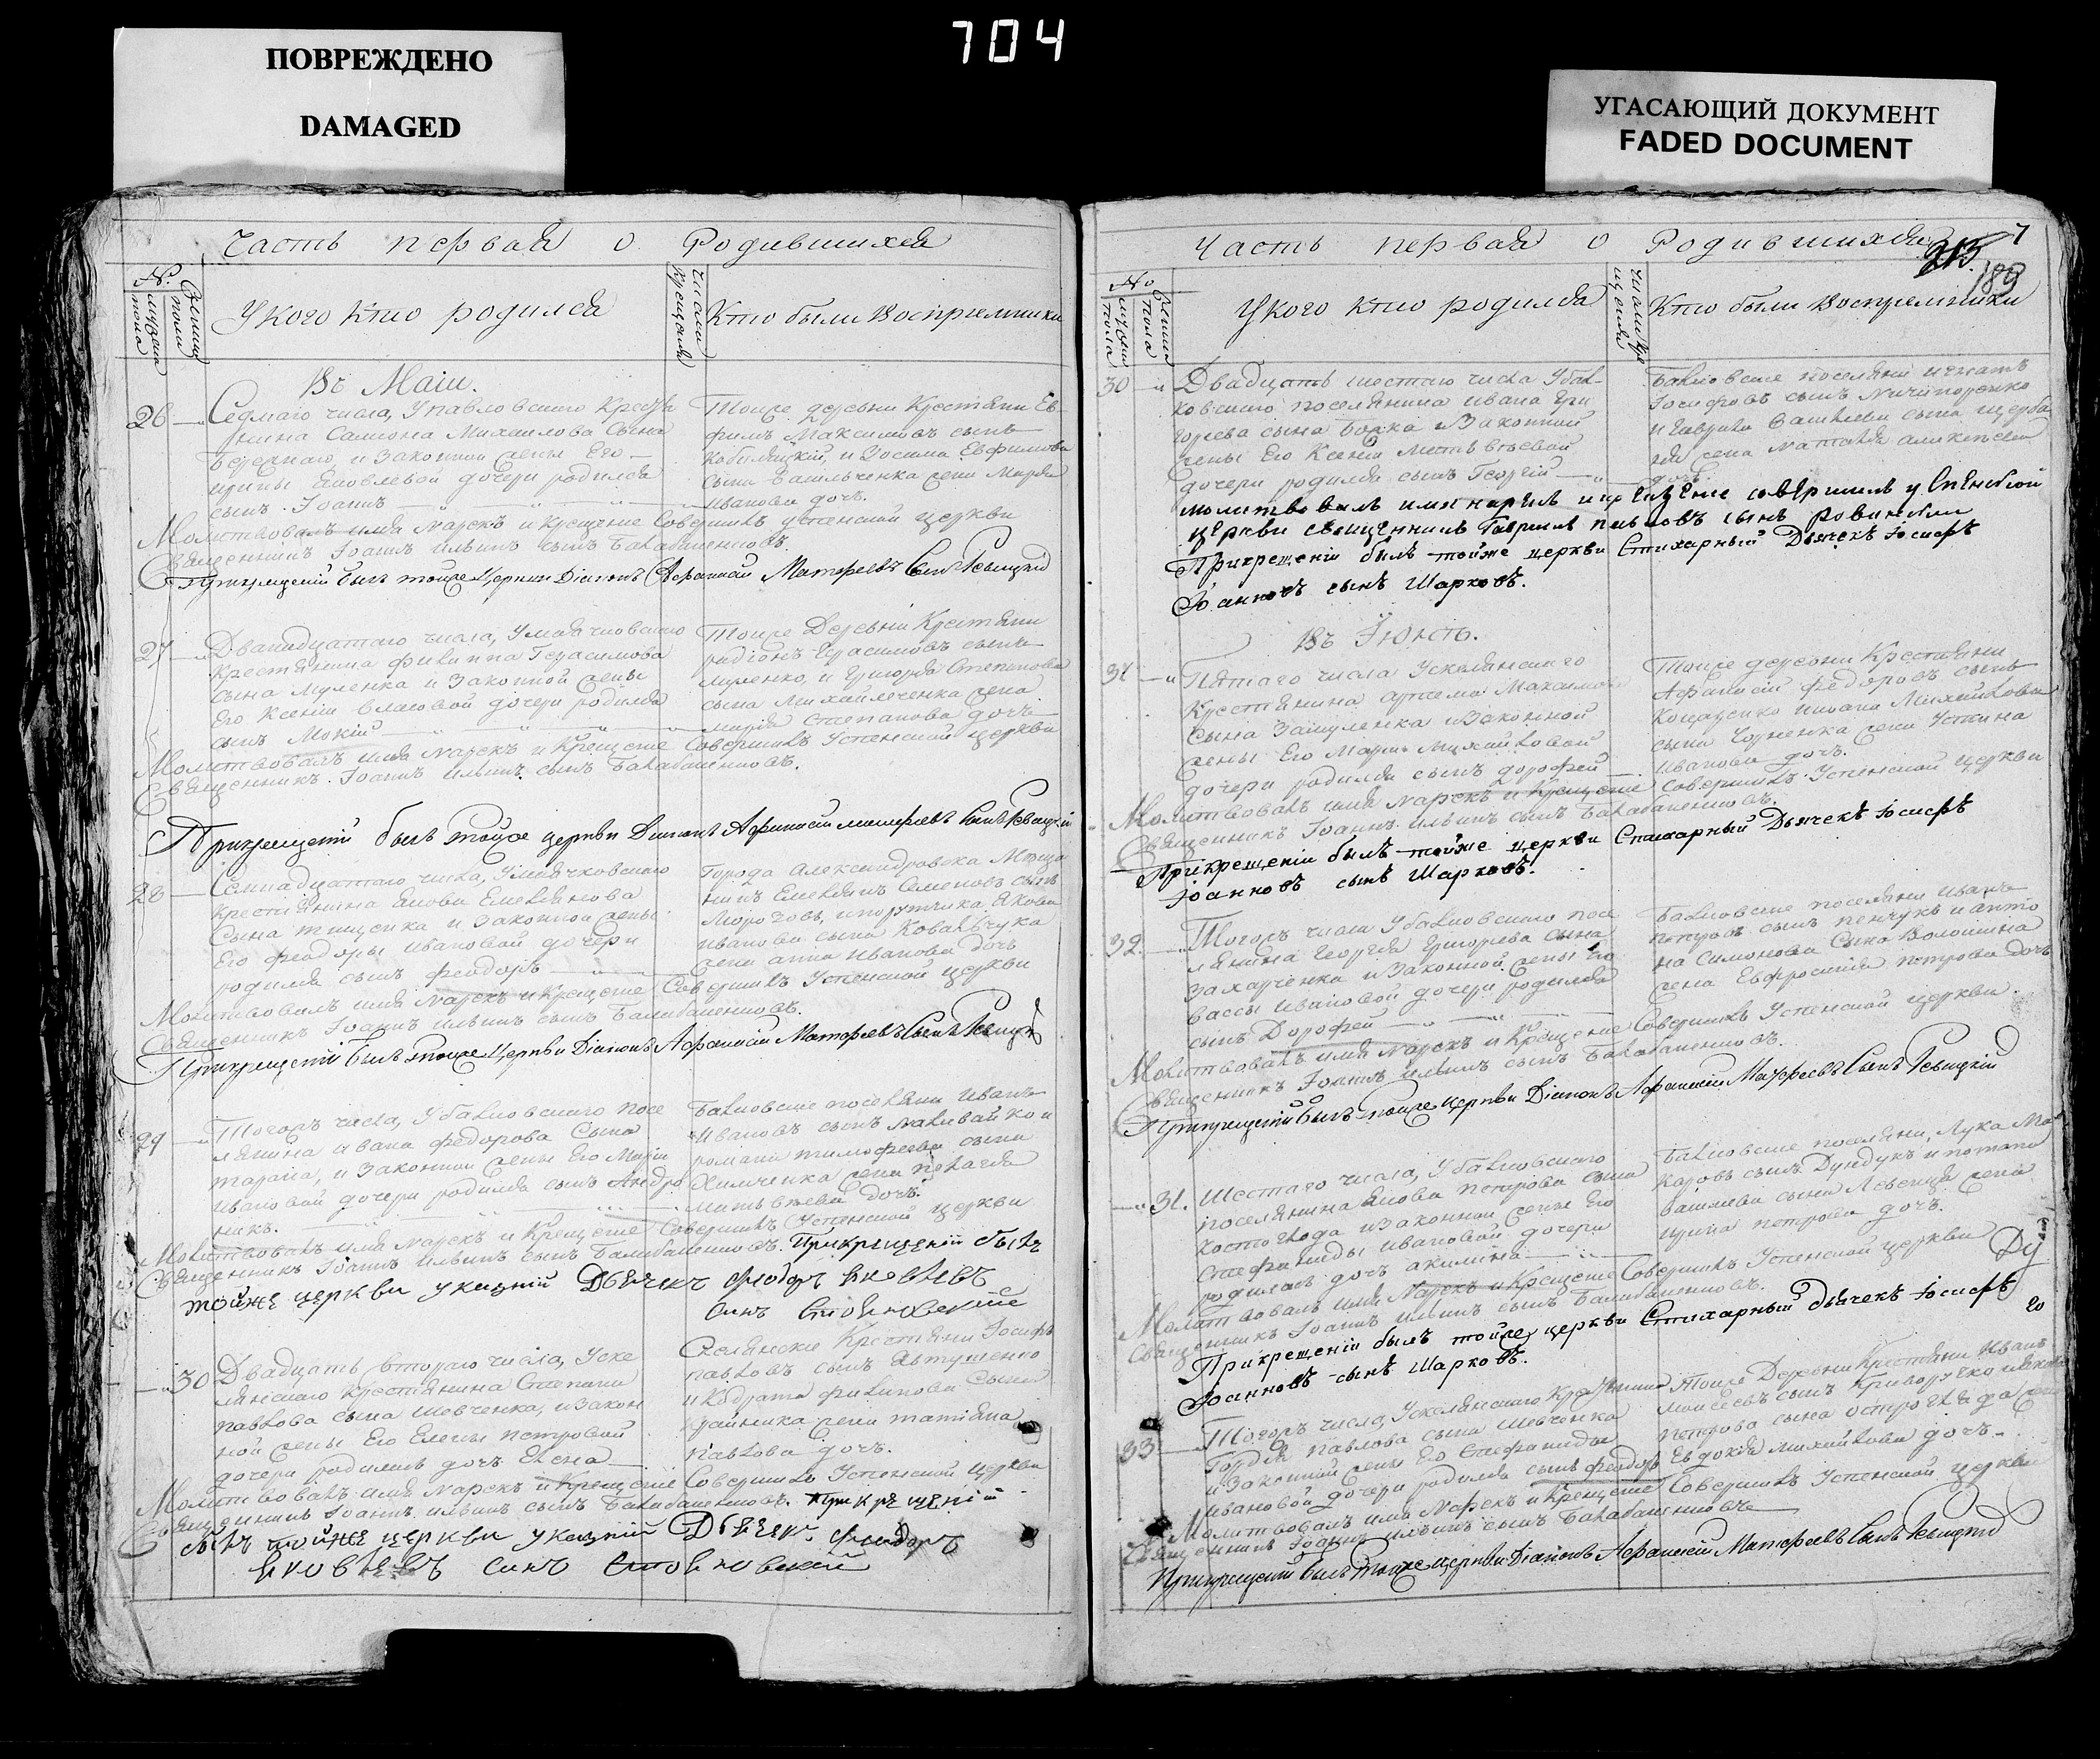 704
ПОВРЕЖДЕНО
DAMAGED
УГАСАЮЩИЙ ДОКУМЕНТ
FADED DOCUMENT
Часть первая о Родившихся
№
мужска пола
женска пола
У кого кто родился
Число крещения
Кто были Восприемники
Въ Маіи.
26
Седмаго числа, У павловскаго Кресть
янина Самсона Михаилова Сына
и Законной жены Его
Яковлевой дочери родился
сынъ Іоаннъ
Тойже деревни Крестьяни Ев-
фимъ Максимовъ сынъ
и Евфимова
сына Васильченка жена
Иванова дочь.
Молитвовалъ имя Нарекъ и крещение Совершилъ успенской церкви
Священникъ Іоаннъ Ильинъ сынъ
При крещеніи былъ тойже Церкви Діаконъ Афанасий Матфеевъ Сынъ
27
Дванадцатаго числа,
Крестьянина филиппа Герасимова
сына Муленка и Законной жены
Его Ксеніи Власовой дочери родился
сынъ Мокій
Тойже Деревни Крестьяни
радіонъ Герасимовъ сынъ
Муленко, и Григорія Степанова
сына Михайличенка жена
марія Степанова дочь
Молитвовалъ имя Нарекъ и Крещение Совершилъ Успенской церкви
Священникъ Іоаннъ Ильинъ сынъ
При крещеніи былъ тойже церкви Діаконъ Афанасий Матфеевъ Сынъ
28
Семнадцатаго числа,
крестьянина Якова Емельянова
Сына тищенка и Законной жены
Его феодоры Ивановой дочери
родился сынъ феодоръ
города Александровска Меща
нинъ Емельянъ Семеновъ сынъ
Морозовъ, и порутчика Якова
Иванова сына Ковальчука
жена анна Иванова дочь
Молитвовалъ имя Нарекъ и Крещение Совершилъ Успенской церкви
Священникъ Іоаннъ Ильинъ сынъ
При крещеніи былъ тойже Церкви Діаконъ Афанасій Матфеевъ Сынъ
29
Тогожъ числа, У балковскаго посе
лянина Ивана федорова Сына
тарана, и Законной жены Его Маріи
Ивановой дочери родился сынъ Андро
никъ.
Балковские поселяни Иванъ
Ивановъ сынъ Наливайко и
романа тимофеева сына
жена пелагея
Матвеева дочь.
Молитвовалъ имя Нарекъ и Крещение Совершилъ Успенской церкви
Священникъ Іоаннъ Ильинъ сынъ При крещеній былъ
тойже церкви указній Дьячекъ Феодоръ Яковлевъ
синъ
30
Двадцать втораго числа, Уске
лянскаго Крестьянина Степана
павлова сына Шевченка, и Закон
ной жены Его Елены петровой
дочери родилась дочь Елена
Скелянские Крестьяни Іосифъ
павловъ сынъ Явтушенко
и Кодрата филипова Сына
жена татіяна
павлова дочь.
Молитвовалъ имя Нарекъ и Крещение Совершилъ Успенской церкви
Священникъ Іоаннъ Ильинъ сынъ При крещеній
былъ тойже церкви указній Дьячекъ Феодоръ
Яковлевъ синъ
Часть первая о Родившихся
7
215
189
№
мужска пола
женска пола
У кого кто родился
Число крещения
Кто были Восприемники
30
Двадцать шестаго числа У бал-
ковскаго поселянина Ивана Гри
горьева сына и Законной
жены Его Ксеніи Матвеевой
дочери родился сынъ Георгій
Балковские поселяни
Іосифовъ сынъ Ничипоренко
и Гаврила Васильева сына Щерба
жена наталія алексеева
дочь.
молитвовалъ имя нарекъ и крещение совершилъ Успенской
церкви священникъ Гавриилъ павловъ сынъ
При крещеніи былъ тойже церкви Стихарный Дьячекъ Іосифъ
Іоанновъ сынъ Шарковъ.
Въ Іюнѣ.
31
Пятаго числа Ускелянскаго
Крестьянина артема Максимова
Сына и Законной
жены Его Маріи Михайловой
дочери родился сынъ дорофей
Тойже деревни Крестьяни
Афанасій федоровъ сынъ
Ивана Михайлова
сына Чорненка жена Устина
Иванова дочь.
Молитвовалъ имя Нарекъ и Крещение Совершилъ Успенской церкви
Священникъ Іоаннъ Ильинъ сынъ
При крещеніи былъ тойже церкви Стихарный Дьячекъ Іосифъ
Іоанновъ сынъ Шарковъ.
32
Тогожъ числа У балковскаго посе
лянина Георгія Григорьева сына
Захарченка и Законной жены Его
Вассы Ивановой дочери родился
сынъ Дорофей
Балковские поселяни Иванъ
петровъ сынъ пенчукъ и анто
на Симонова Сына Волошина
жена Евфросинія петрова дочь
Молитвовалъ имя Нарекъ и Крещение Совершилъ Успенской церкви
Священникъ Іоаннъ Ильинъ сынъ
При крещеніи былъ тойже Церкви Діаконъ Афанасій Матфеевъ Сынъ
31.
Шестаго числа, У балковскаго
поселянина Якова петрова сына
и Законной жены Его
Стефаниды Ивановой дочери
родилась дочь акилина
Балковские поселяни, Лука Ма
каровъ сынъ Дундукъ и потапа
сына жена
ирина петрова дочь.
Молитвовалъ имя Нарекъ и Крещение Совершилъ Успенской церкви
Священникъ Іоаннъ Ильинъ сынъ
При крещеніи былъ тойже церкви Стихарный дьячекъ Іосифъ
Іоанновъ сынъ Шарковъ.
33
Тогожъ числа, Ускелянскаго Крестьянина
Гордія павлова сына Шевченка
и Законной жены Его Стефаниды
Ивановой дочери родился сынъ феодоръ
Тойже Деревни Крестьяни Иванъ
Моисеевъ сынъ Криворучко и Якова
петрова сына жена
Евдокія михайлова дочь
Молитвовалъ имя Нарекъ и Крещение Совершилъ Успенской церкви
Священникъ Іоаннъ Ильинъ сынъ
При крещеніи былъ тойже церкви Діаконъ Афанасій Матфеевъ Сынъ